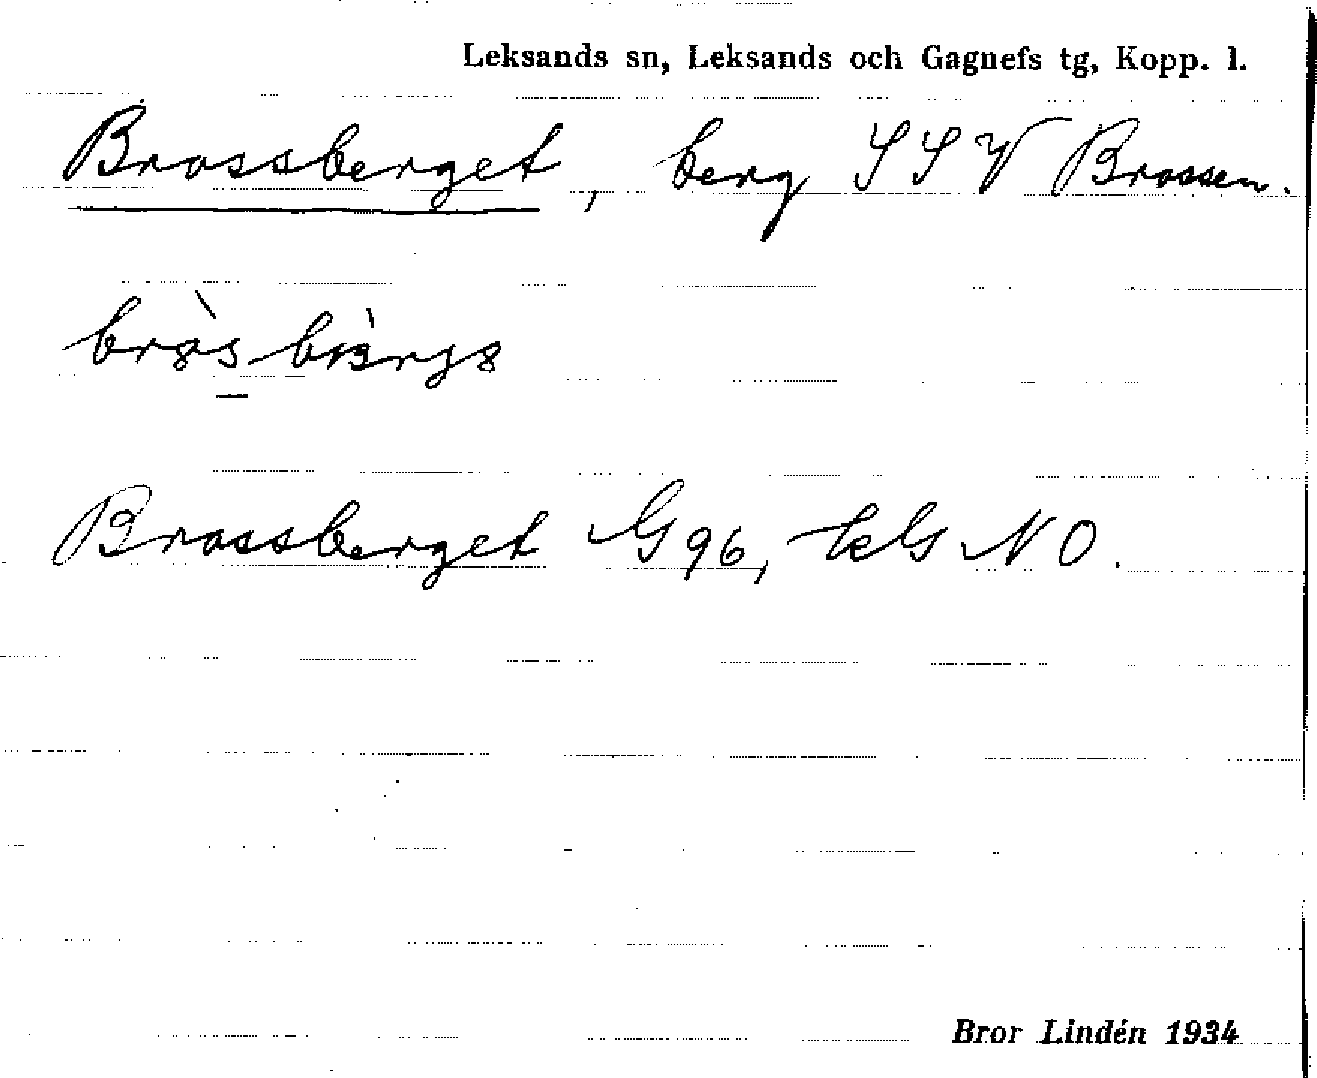 Leksands sn, Leksands och Gagnefs tg, Kopp. l.
Brossberget, berg SSV Brossen.
Brossberget G96, kls NO.
Bror Lindén 1934